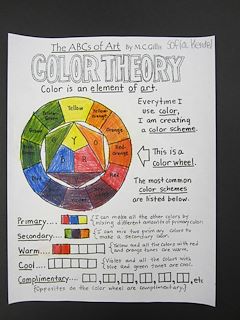 The ABCs of Art By M.C. Gillis
COLOR THEORY
Color is an element of art.
Everytime I
use color,
I am creating
a color scheme.
This is a
color wheel.
The most common
color schemes
are listed below.
Yellow
Yellow-Orange
Orange
Red-Orange
Red
Y
O
R
B
Primary....
(I can make all the other colors by
mixing different amounts of primary color.
Secondary
(I can mix two primary colors to
make a secondary color.
Warm....
(Yellow and all the colors with red
and orange tones are warm.
Cool....
(Violet and all the colors with
blue and green tones are cool.
Complimentary...
, etc
(Opposites on the color wheel are complimentary.)